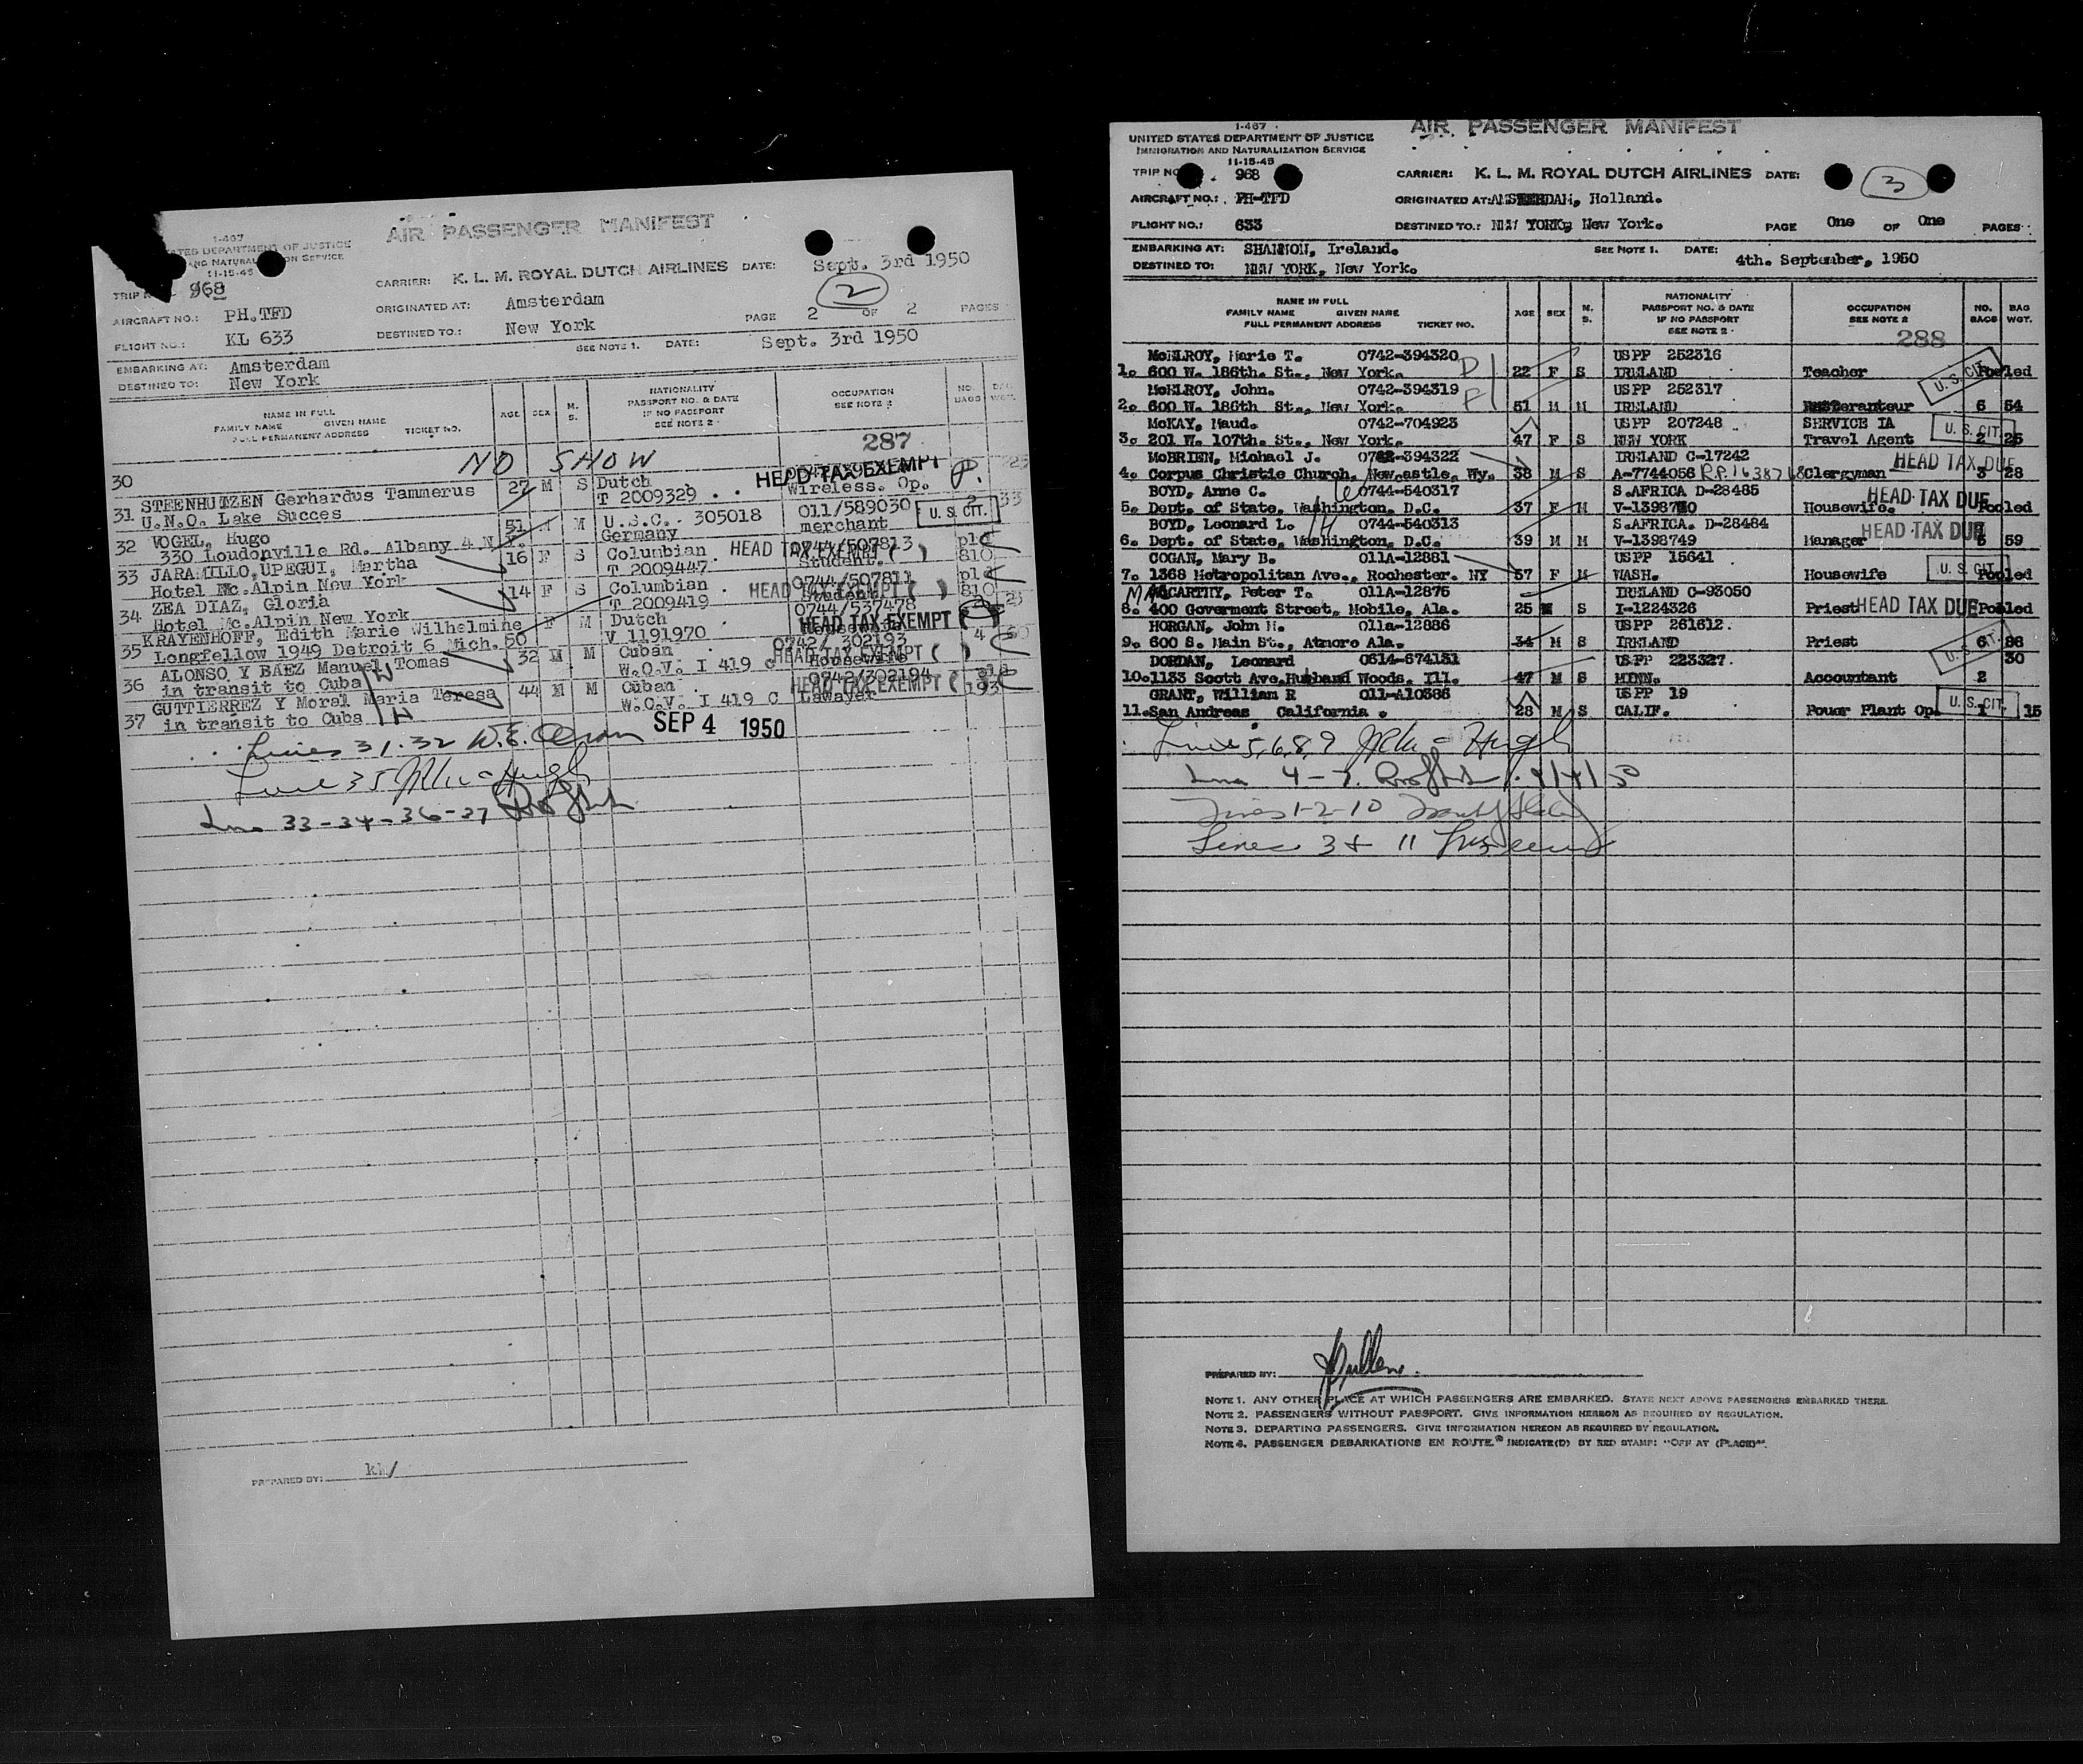 AIR PASSENGER MANIFEST
1-467
ATES DEPARTMENT OF JUSTICE
AND NATURAL ON SERVICE
11-15-45
CARRIER: K. L. M. ROYAL DUTCH AIRLINES DATE: Sept. 3rd 1950
TRIP 968
2
AIRCRAFT NO.: PH.TFD ORIGINATED AT: Amsterdam
PAGE 2 OF 2 PAGES
FLIGHT NO.: KL 633 DESTINED TO.: New York
SEE NOTE 1. DATE: Sept. 3rd 1950
EMBARKING AT: Amsterdam
DESTINED TO: New York
NAME IN FULL
FAMILY NAME GIVEN NAME
FULL PERMANENT ADDRESS TICKET NO.
AGE SEX M. S.
NATIONALITY
PASSPORT NO. & DATE
IF NO PASSPORT
SEE NOTE 2
OCCUPATION
SEE NOTE 2
NO. BAGS
BAG WGT.
287
30 NO SHOW
HEAD TAX EXEMPT
STEENHUTZEN Gerhardus Tammerus 27 M S Dutch
31 U.N.O. Lake Succes T 2009329 Wireless. Op.
VOGEL, Hugo 51 M U.S.C. 305018 011/589030 2 33
32 330 Loudonville Rd. Albany 4 N.Y. Germany merchant U. S. CIT.
JARAMILLO,UPEGUI, Martha 16 F S Columbian 0744/507813 pld
33 Hotel Mc.Alpin New York T 2009447 Student. 810
HEAD TAX EXEMPT ( )
ZEA DIAZ, Gloria 14 F S Columbian 0744/507811 pld
34 Hotel Mc.Alpin New York T 2009419 810
HEAD TAX EXEMPT ( )
KRAYENHOFF, Edith Marie Wilhelmine F M Dutch 0744/537478
35 Longfellow 1949 Detroit 6 Mich. 50 V 1191970
HEAD TAX EXEMPT
ALONSO Y BAEZ Manuel Tomas 32 M M Cuban 0742/302193 4
36 in transit to Cuba W.O.V. I 419 C
HEAD TAX EXEMPT ( )
GUTTIERREZ Y Moral Maria Teresa 44 M M Cuban 0742/302194 pld
37 in transit to Cuba W.O.V. I 419 C Lawayer 193
HEAD TAX EXEMPT (
SEP 4 1950
Lines 31.32 W.E.
Line 35
Line 33-34-36-37
PREPARED BY: kk/
AIR PASSENGER MANIFEST
1-467
UNITED STATES DEPARTMENT OF JUSTICE
IMMIGRATION AND NATURALIZATION SERVICE
11-15-45
TRIP NO. 968 CARRIER: K. L. M. ROYAL DUTCH AIRLINES DATE: 3
AIRCRAFT NO.: PH-TFD ORIGINATED AT: AMSTERDAM, Holland.
FLIGHT NO.: 633 DESTINED TO.: NEW YORK, New York. PAGE One OF One PAGES
EMBARKING AT: SHANNON, Ireland. SEE NOTE 1. DATE: 4th. September, 1950
DESTINED TO: NEW YORK, New York.
NAME IN FULL
FAMILY NAME GIVEN NAME
FULL PERMANENT ADDRESS TICKET NO.
AGE SEX M. S.
NATIONALITY
PASSPORT NO. & DATE
IF NO PASSPORT
SEE NOTE 2
OCCUPATION
SEE NOTE 2
NO. BAGS
BAG WGT.
288
McELROY, Marie T. 0742-394320 USPP 252316
1. 600 W. 186th. St., New York. 22 F S IRELAND Teacher Pooled
U. S. CIT.
McELROY, John. 0742-394319 USPP 252317
2. 600 W. 186th St., New York. 51 M M IRELAND Resteranteur 6 54
McKAY, Maud. 0742-704923 USPP 207248 SERVICE IA
3. 201 W. 107th. St., New York. 47 F S NEW YORK Travel Agent 2 25
U. S. CIT.
McBRIEN, Michael J. 0742-394322 IRELAND C-17242
4. Corpus Christie Church, Newcastle, Wy. 38 M S A-7744056 R.P. 1638768 Clergyman 3 28
HEAD TAX DUE
BOYD, Anne C. 0744-540317 S.AFRICA D-28485
5. Dept. of State, Washington, D.C. 37 F M V-1398750 Housewife. Pooled
HEAD TAX DUE
BOYD, Leonard L. 0744-540313 S.AFRICA. D-28484
6. Dept. of State, Washington, D.C. 39 M M V-1398749 Manager 59
HEAD TAX DUE
COGAN, Mary B. 011A-12881 USPP 15641
7. 1368 Metropolitan Ave., Rochester. NY 57 F M WASH. Housewife Pooled
U. S. CIT.
MACCARTHY, Peter T. 011A-12875 IRELAND C-93050
8. 400 Goverment Street, Mobile, Ala. 25 M S I-1224326 Priest Pooled
HEAD TAX DUE
HORGAN, John M. 011a-12886 USPP 261612.
9. 600 S. Main St., Atmore Ala. 34 M S IRELAND Priest 6 86
U. S. CIT.
DORDAN, Leonard 0614-674131 USPP 223327. 30
10. 1133 Scott Ave. Hubband Woods. Ill. 47 M S MINN. Accountant 2
GRANT, William R 011-A10366 USPP 19
11. San Andreas California. 28 M S CALIF. Power Plant Op. 1 15
U. S. CIT.
Line 5,6,8,9
Line 4-7. 9/4/50
Lines 1-2-10
Lines 3 & 11
PREPARED BY:
NOTE 1. ANY OTHER PLACE AT WHICH PASSENGERS ARE EMBARKED. STATE NEXT ABOVE PASSENGERS EMBARKED THERE.
NOTE 2. PASSENGERS WITHOUT PASSPORT. GIVE INFORMATION HEREON AS REQUIRED BY REGULATION.
NOTE 3. DEPARTING PASSENGERS. GIVE INFORMATION HEREON AS REQUIRED BY REGULATION.
NOTE 4. PASSENGER DEBARKATIONS EN ROUTE. INDICATE(D) BY RED STAMP: "OFF AT (PLACE)".